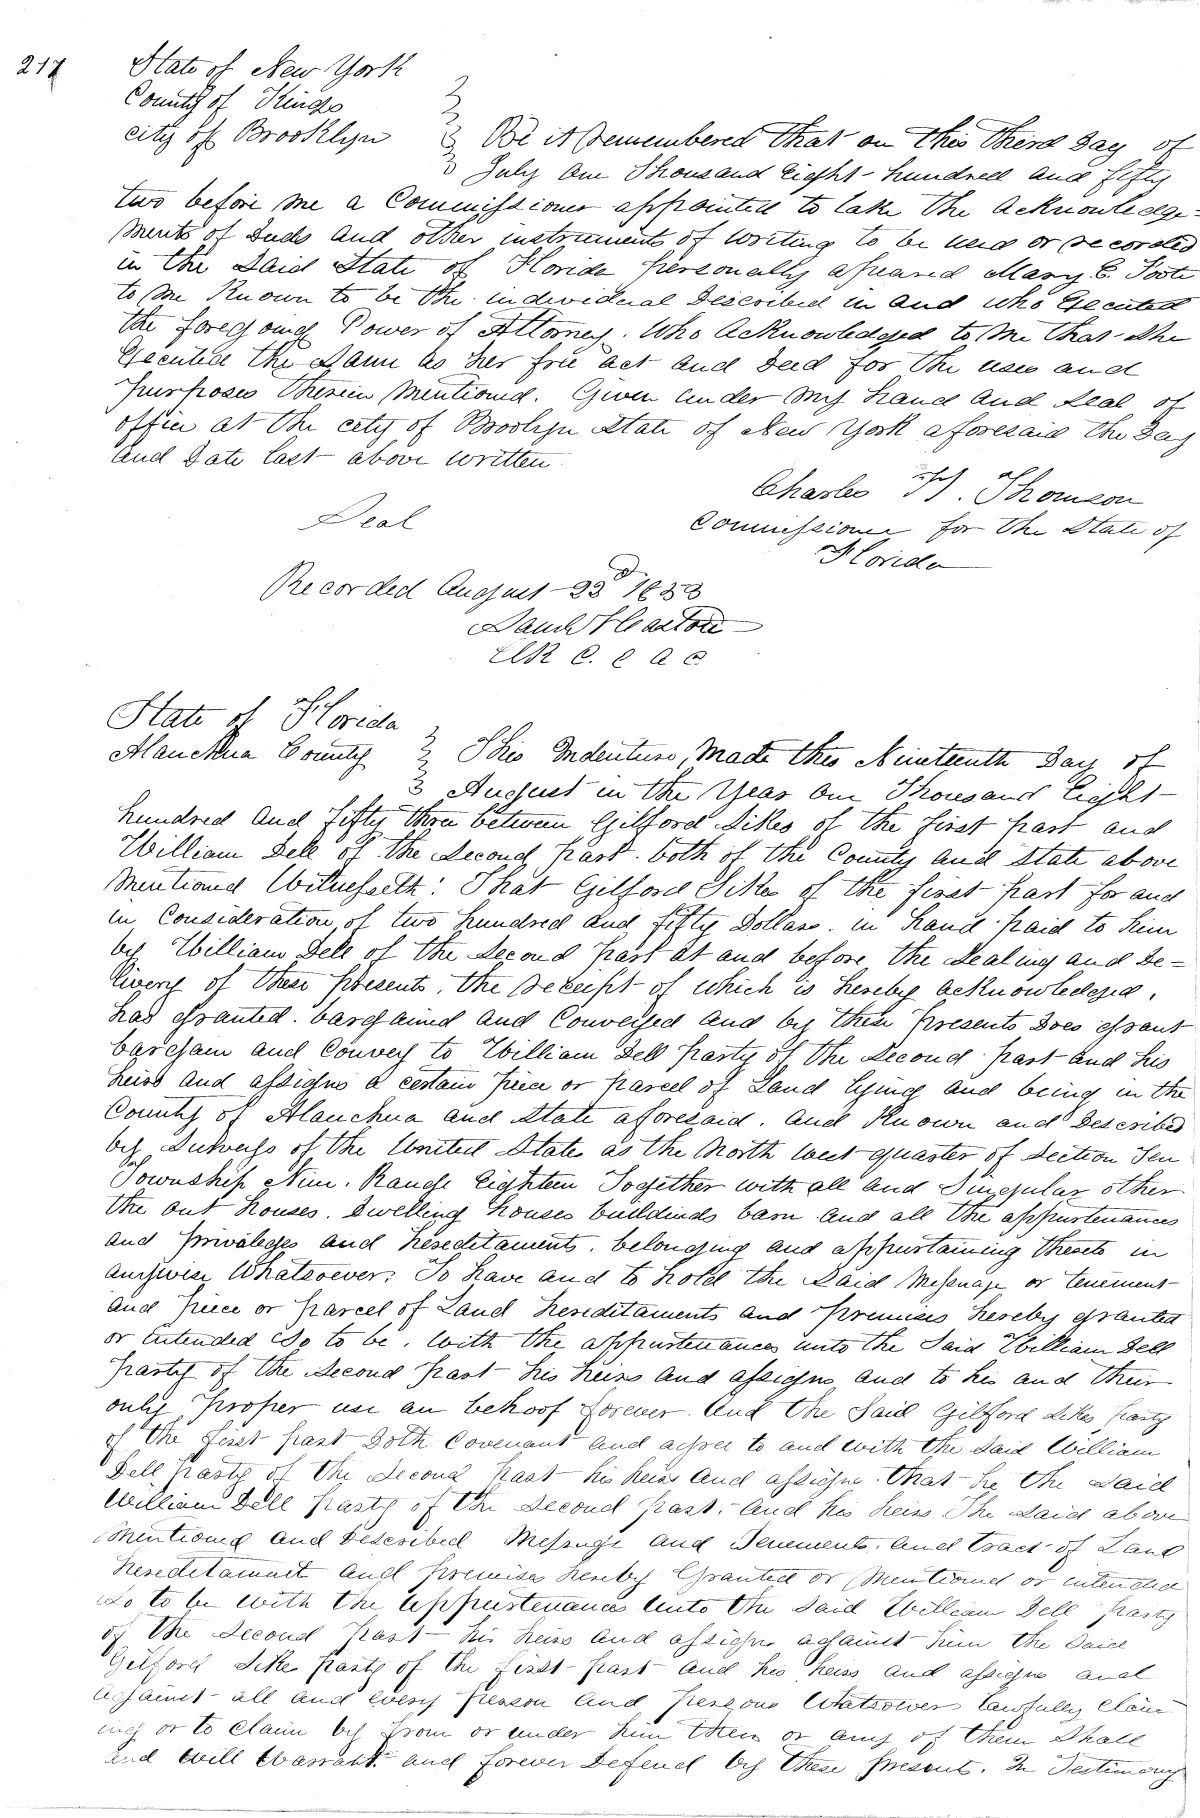 217
State of New York
County of Kings
city of Brooklyn } Be it Remembered that on this third Day of
July one Thousand Eight hundred and fifty
two before me a Commissioner appointed to take the Acknowledge=
ments of Deeds and other instruments of writing to be used or recorded
in the Said State of Florida personally apeared Mary E. Foote
to me Known to be the individual Described in and who Executed
the foregoing Power of Attorney. Who Acknowledged to me that she
Executed the Same as her free act and Deed for the uses and
purposes therein mentioned. Given under my hand and seal of
office at the city of Broolyn State of New York aforesaid the Day
and Date last above written.
Charles H. Thomson
Seal
Commissioner for the State of
Florida
Recorded August 23d 1853
Clk C. C. A C
State of Florida
Alauchua County } This Indenture, made this Nineteenth Day of
August in the Year one Thousand Eight
hundred and fifty three between Gilford Sikes of the first part and
William Dell of the Second part. both of the County and State above
mentioned Witnesseth: That Gilford Sikes of the first part for and
in Consideration of two hundred and fifty Dollars. in hand paid to him
by William Dell of the Second part at and before the Sealing and De=
livery of these presents, the receipt of which is hereby acknowledged,
has granted. bargained and Conveyed and by these presents Does grant
bargain and Convey to William Dell party of the Second part and his
heirs and assigns a certain piece or parcel of Land lying and being in the
County of Alauchua and State aforesaid. and Known and Described
by Surveys of the United States as the North west quarter of Section Ten
Township Nine. Range Eighteen Together with all and Singular other
the out houses. Dwelling houses buildinds barn and all the appurtenances
and privileges and hereditaments. belonging and appurtaining thereto in
anywise Whatsoever: To have and to hold the Said Messuage or tenement
and piece or parcel of Land hereditaments and premises hereby granted
or intended So to be, with the appurtenances unto the Said William Dell
party of the Second part his heirs and assigns and to his and their
only proper use an behoof forever. And the Said Gilford Sikes party
of the first part Doth Covenant and agree to and with the said William
Dell party of the Second part his heirs and assigns. that he the said
William Dell party of the Second part. and his heirs The said above
mentioned and Described Messuage and Tenements. and tract of Land
hereditament and premises hereby Granted or mentioned or intended
So to be with the appurtenances unto the said William Dell party
of the Second part his heirs and assigns against him the said
Gilford Sikes party of the first part and his heirs and assigns and
against all and every person and persons Whatsoever lawfully claim
ing or to claim by from or under him them or any of them Shall
and will Warrant and forever Defend by these presents. In Testimony